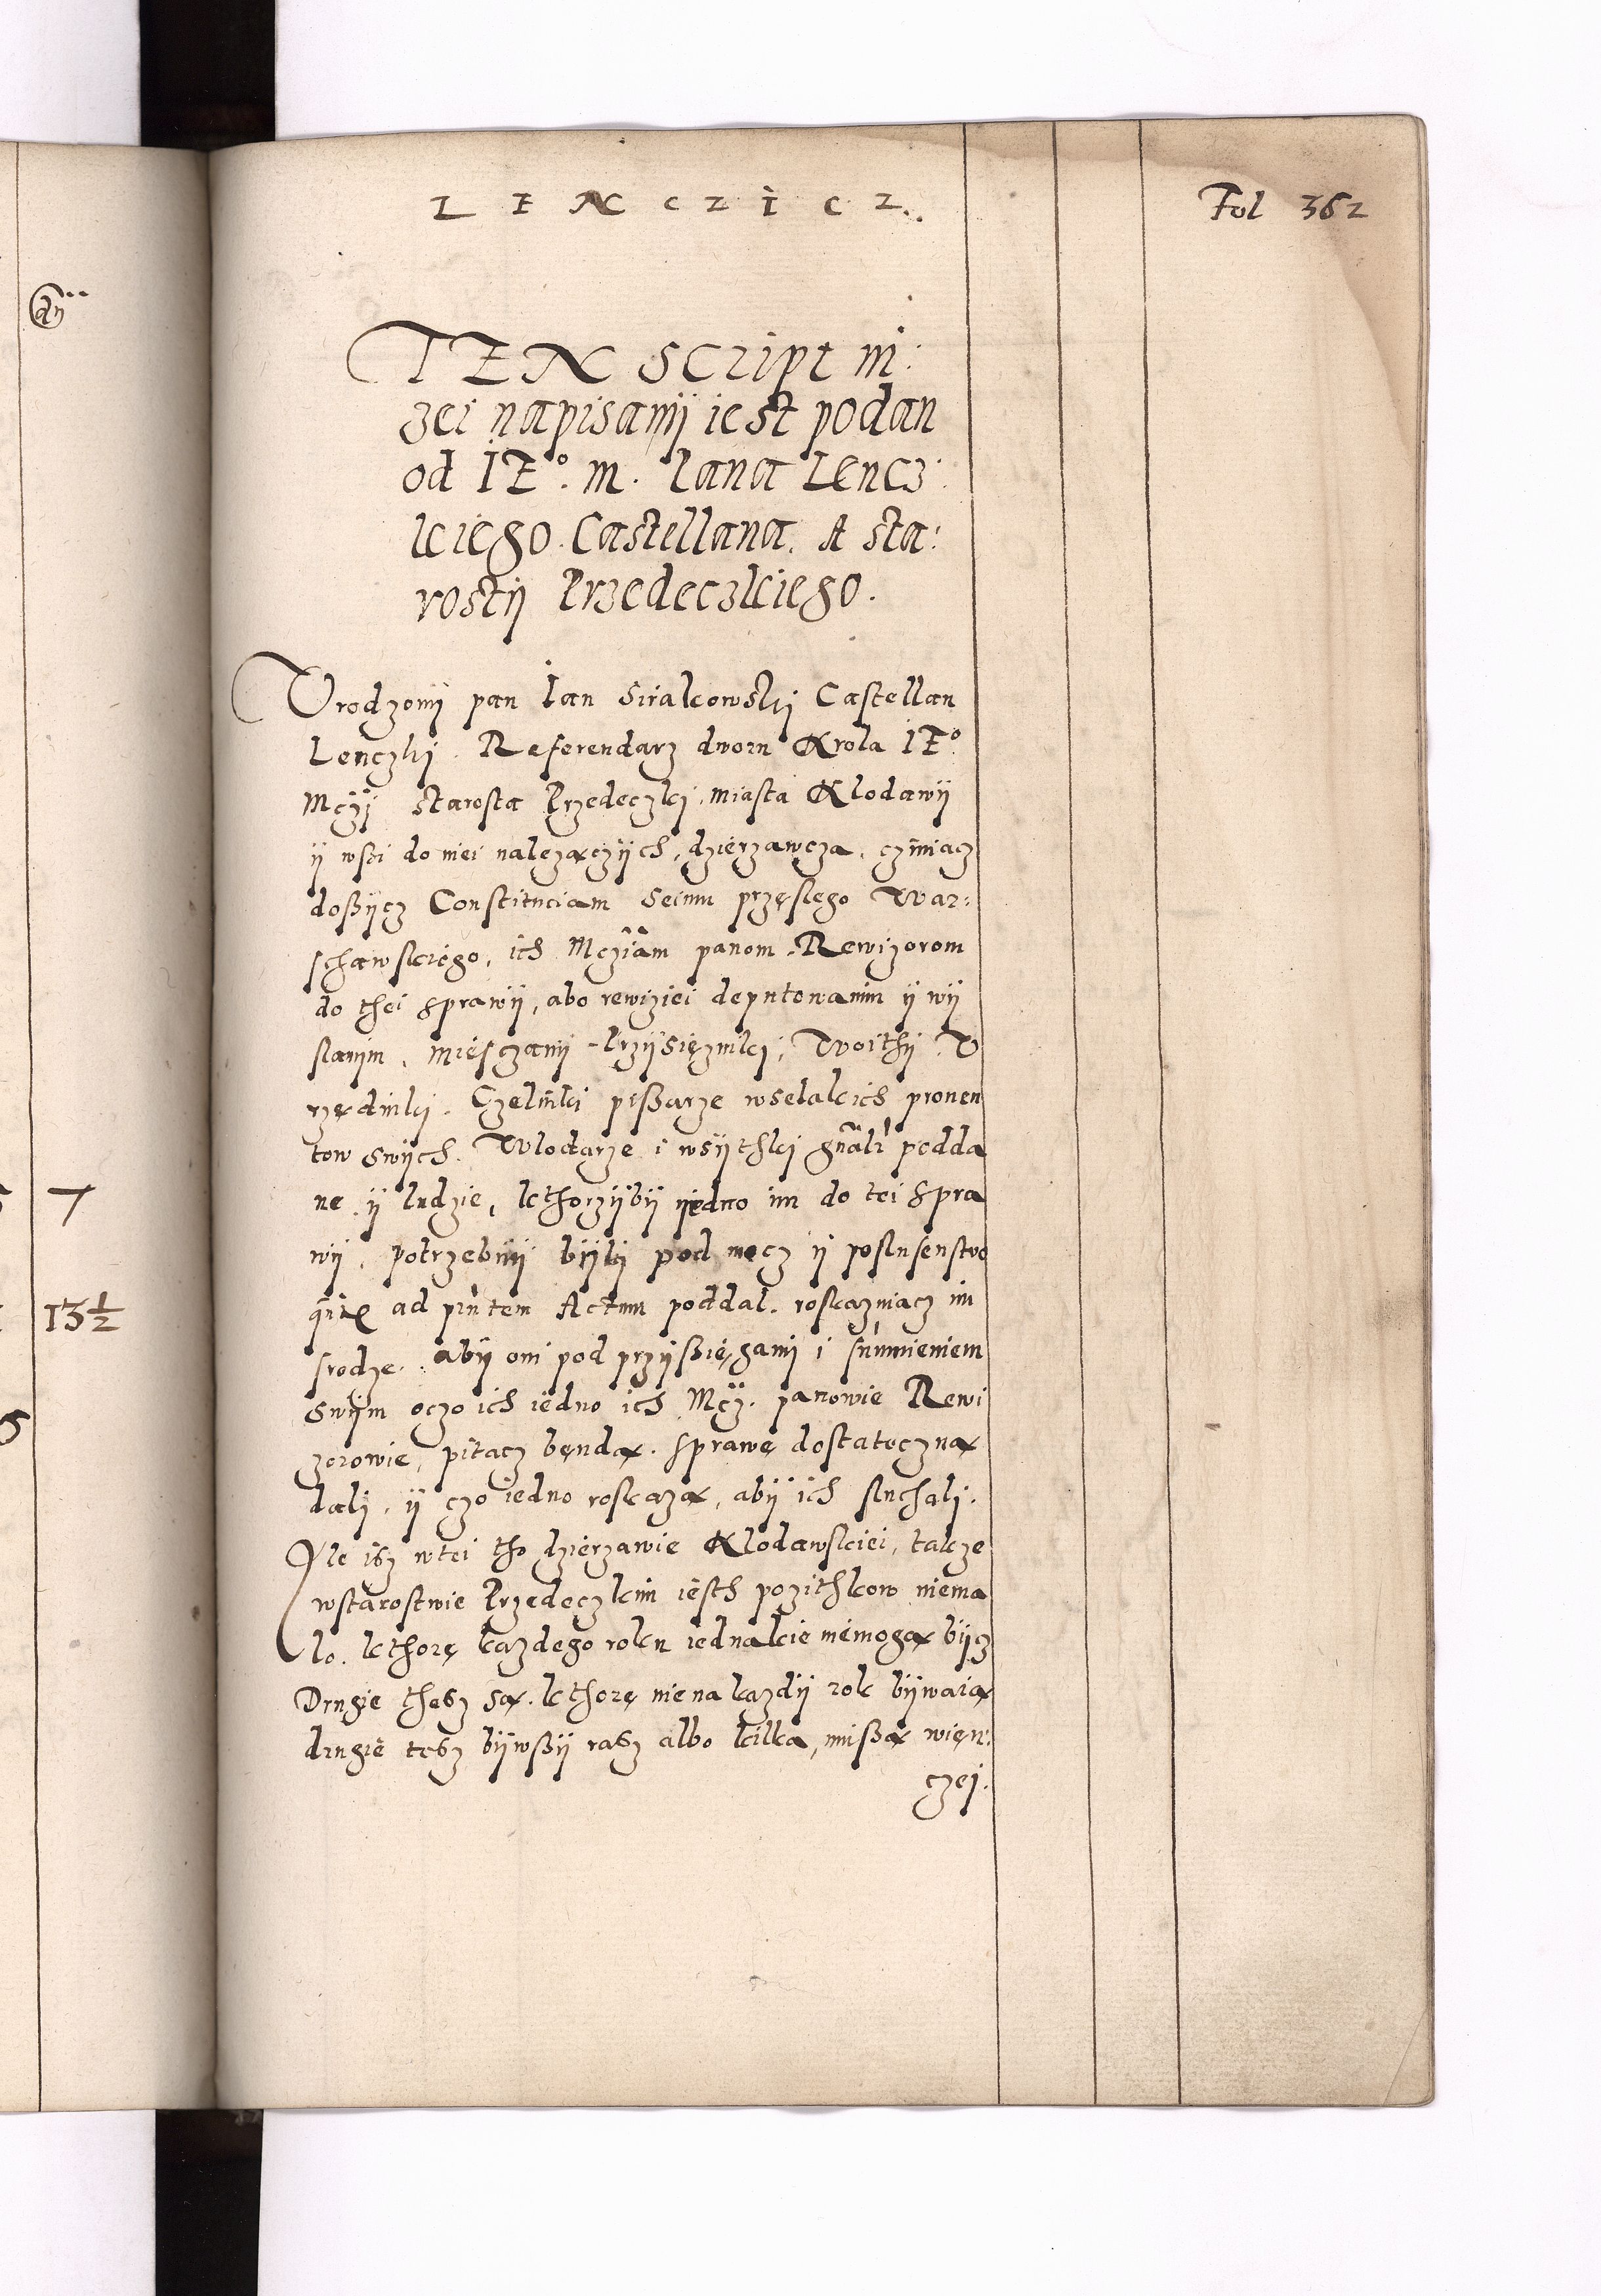 LENCZICZ.
Fol 362
TEN Script ni:
zei napisanÿ iest podan
od IE°. M. Iana Lencz:
kiego. Castellana. A sta:
rostÿ Przedeczkiego.
Vrodzonÿ pan Ian Sirakowskÿ Castellan
Lenczkj. Referendarz dworu Krola IE°.
Mczÿ Starosta Przedeczkj. Miasta Klodawÿ
ÿ wsci do niei nalezączÿch, dzierzawcza, cziniacz
doßÿcz Constituciam Seimu przęslego War:
schawskiego, ich Mcziam panom Rewizorom
do thei sprawÿ, abo rewiziei deputowanim ÿ wÿ
slanÿm, Miesczanÿ Przÿsięznikj, Woithÿ V
rzędnikj. Czelniki pißarze wselakich prouen
tow swÿch. Wlodarze i wsÿthkj gnali podda
ne ÿ ludzie, kthorzÿbÿ iedno im do tei spra
wÿ, potrzebnÿ bÿlj pod mocz ÿ poslusenstwo
ad pintem Actum poddal. roskazuiacz im
srodze. abÿ oni pod przÿßięgami i sumnieniem
swÿm oczo ich iedno ich Mcz. panowie Rewi
zorowie, pitacz będą. sprawę dostateczną
dalj. ÿ czo iedno roskazą, abÿ ich sluchalj.
Ale isz wtei tho dzierzawie Klodawskiei, takze
wstarostwie Przedeczkim iesth pozithkow niema
lo. kthorę kazdego roku iednakie niemogą bÿcz
Drugie thesz są. kthorę nie na kazdÿ rok bÿwaią
drugie tesz bÿwßÿ rasz albo kilka, mißą więn:
czej.
7
13½